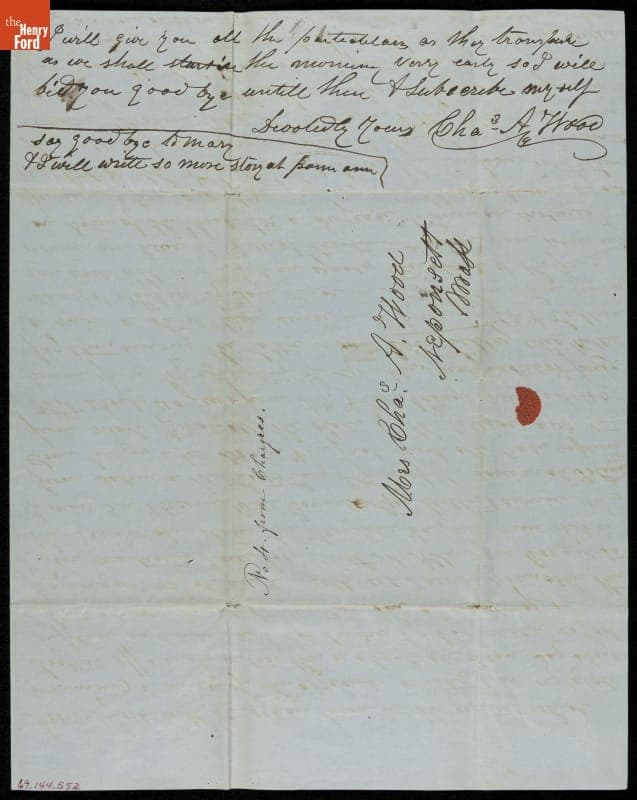 the
Henry
Ford
I will give you all the particulars as they transpire
as we shall start in the morning very early so I will
bid you good bye untill then & Subscribe myself
Devotedly Yours Chaˢ A. Wood
say good bye to mary
& I will write so more stoy at
Mrs Chaˢ. A. Wood
Neponsett
Mass
No 4. from Chargres.
69.144.552